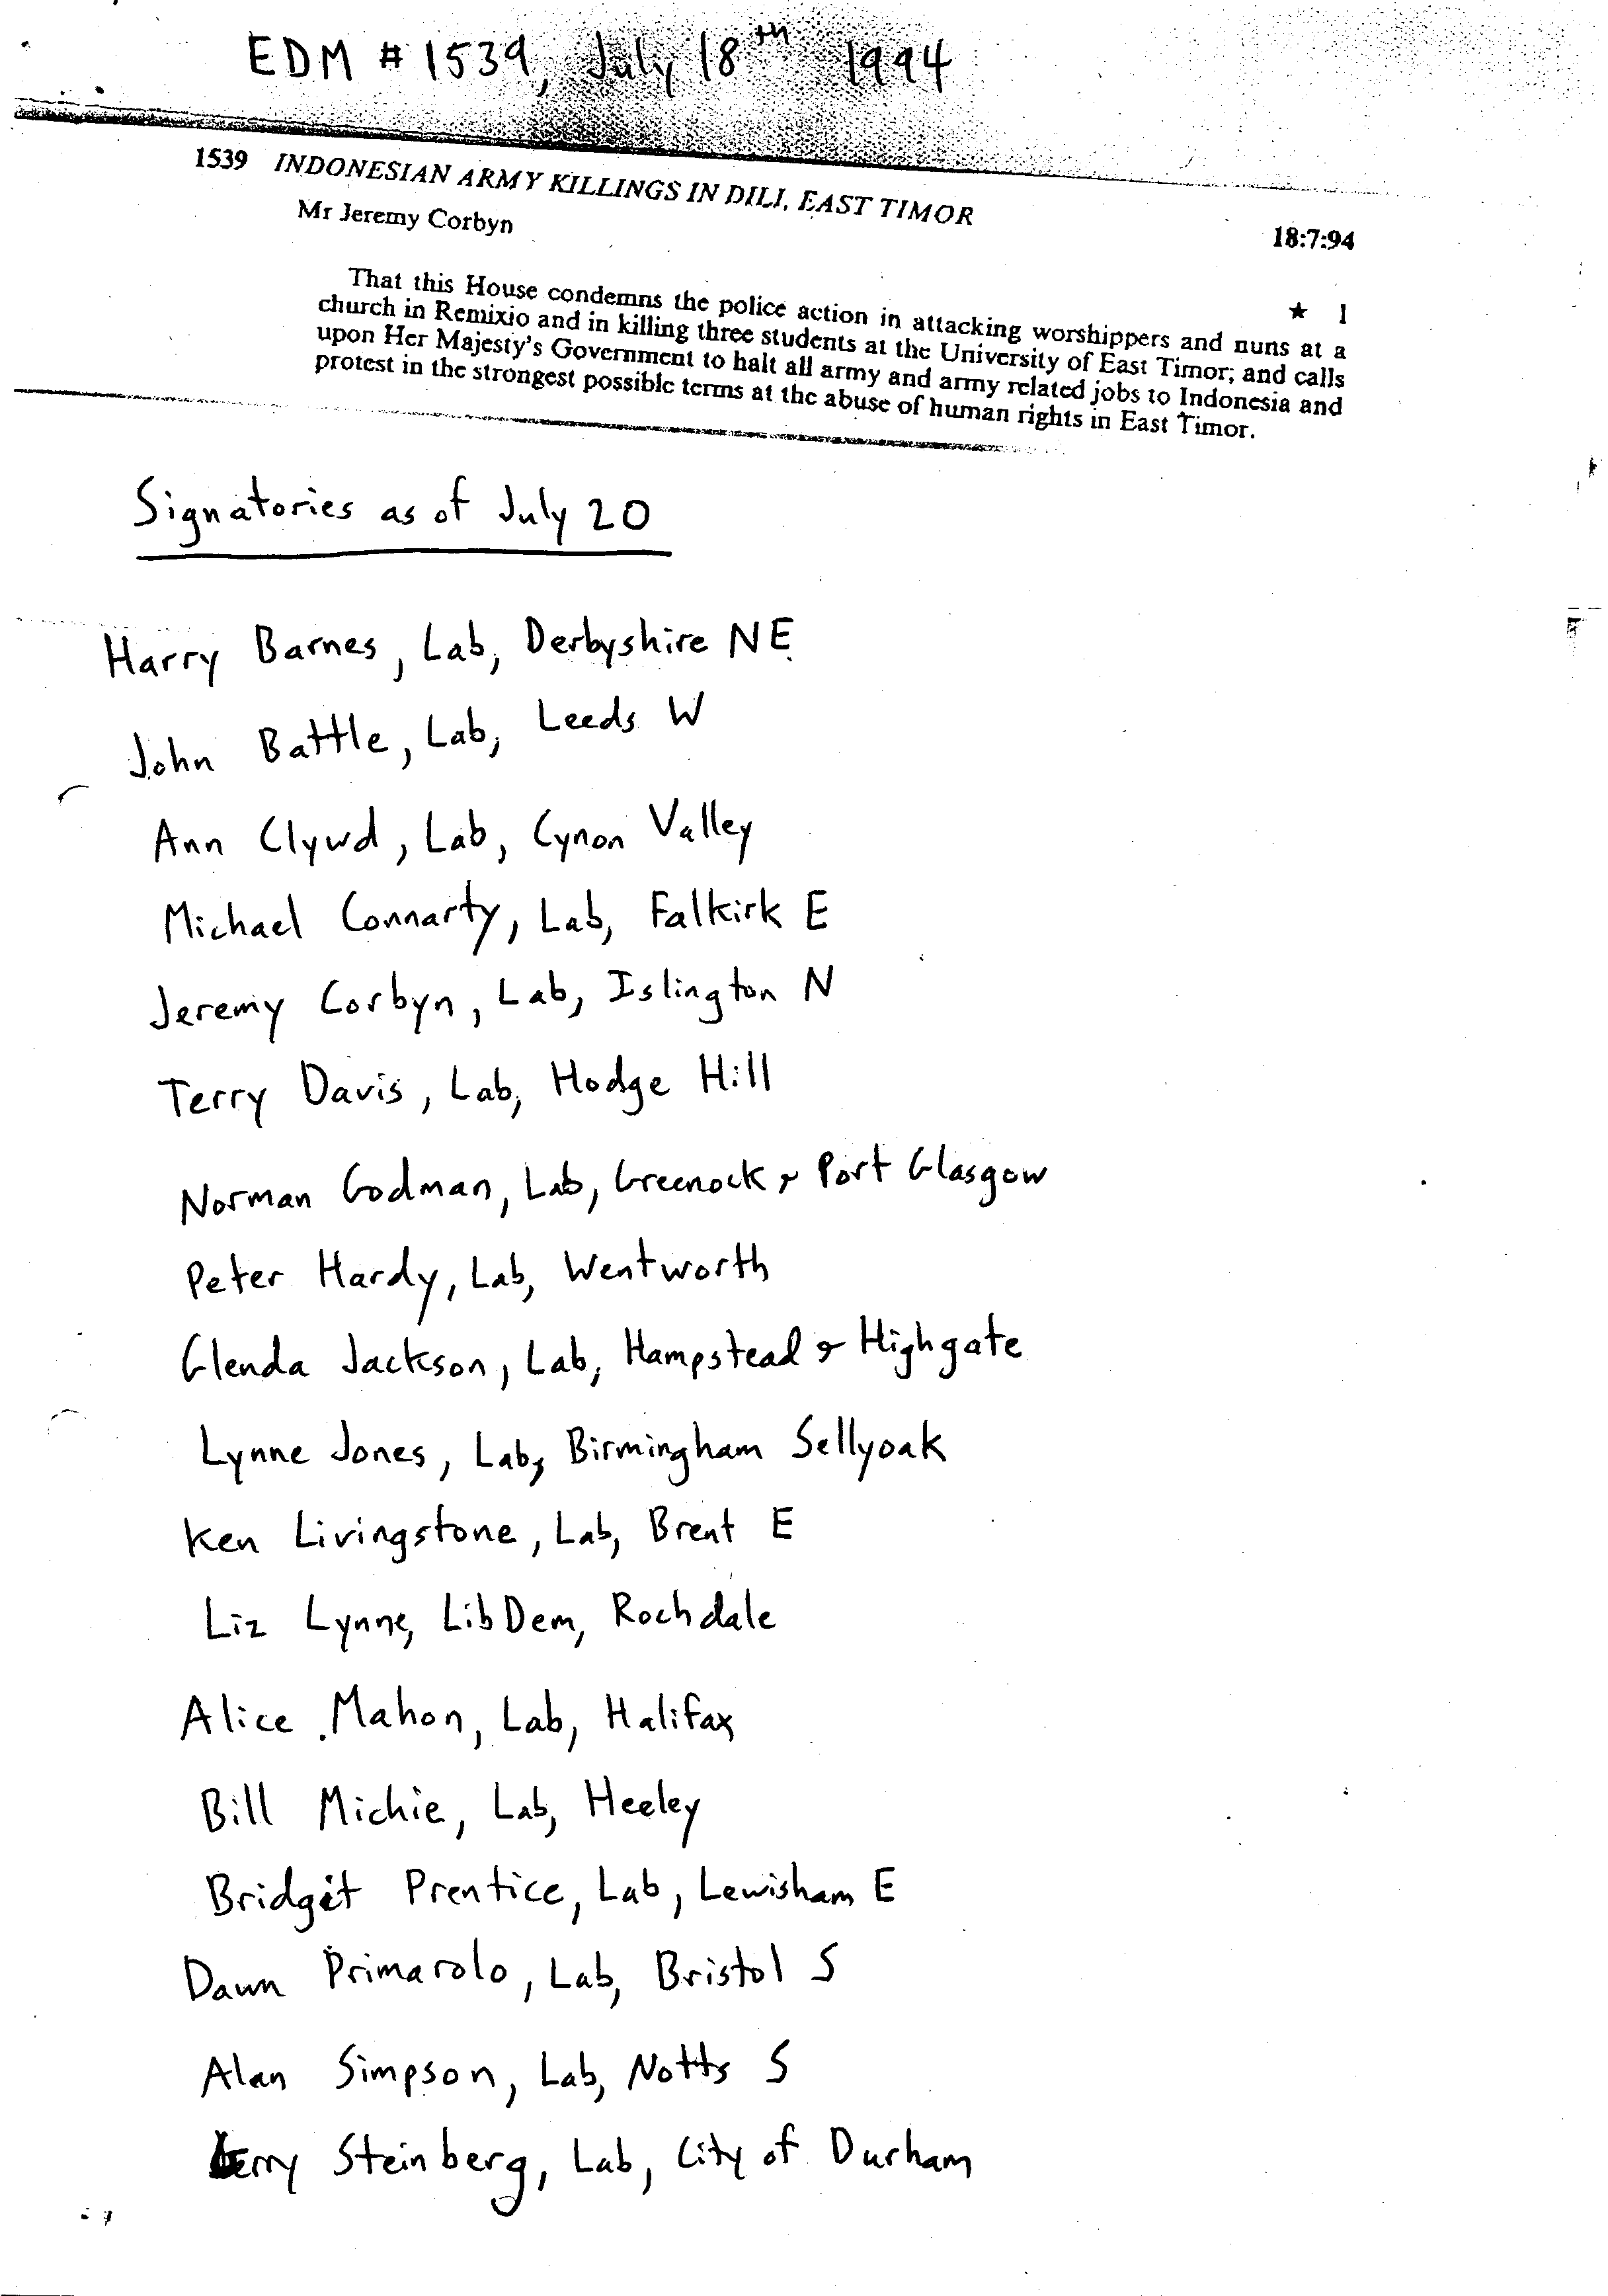 EDM # 1539, July 18th 1994
1539 INDONESIAN ARMY KILLINGS IN DILI, EAST TIMOR
18:7:94
Mr Jeremy Corbyn
★ 1
That this House condemns the police action in attacking worshippers and nuns at a
church in Remixio and in killing three students at the University of East Timor; and calls
upon Her Majesty's Government to halt all army and army related jobs to Indonesia and
protest in the strongest possible terms at the abuse of human rights in East Timor.
Signatories as of July 20
Harry Barnes, Lab, Derbyshire NE
John Battle, Lab, Leeds W
Ann Clywd, Lab, Cynon Valley
Michael Connarty, Lab, Falkirk E
Jeremy Corbyn, Lab, Islington N
Terry Davis, Lab, Hodge Hill
Norman Godman, Lab, Greenock & Port Glasgow
Peter Hardy, Lab, Wentworth
Glenda Jackson, Lab, Hampstead & Highgate
Lynne Jones, Lab, Birmingham Sellyoak
Ken Livingstone, Lab, Brent E
Liz Lynne, LibDem, Rochdale
Alice Mahon, Lab, Halifax
Bill Michie, Lab, Heeley
Bridget Prentice, Lab, Lewisham E
Dawn Primarolo, Lab, Bristol S
Alan Simpson, Lab, Notts S
Gerry Steinberg, Lab, City of Durham